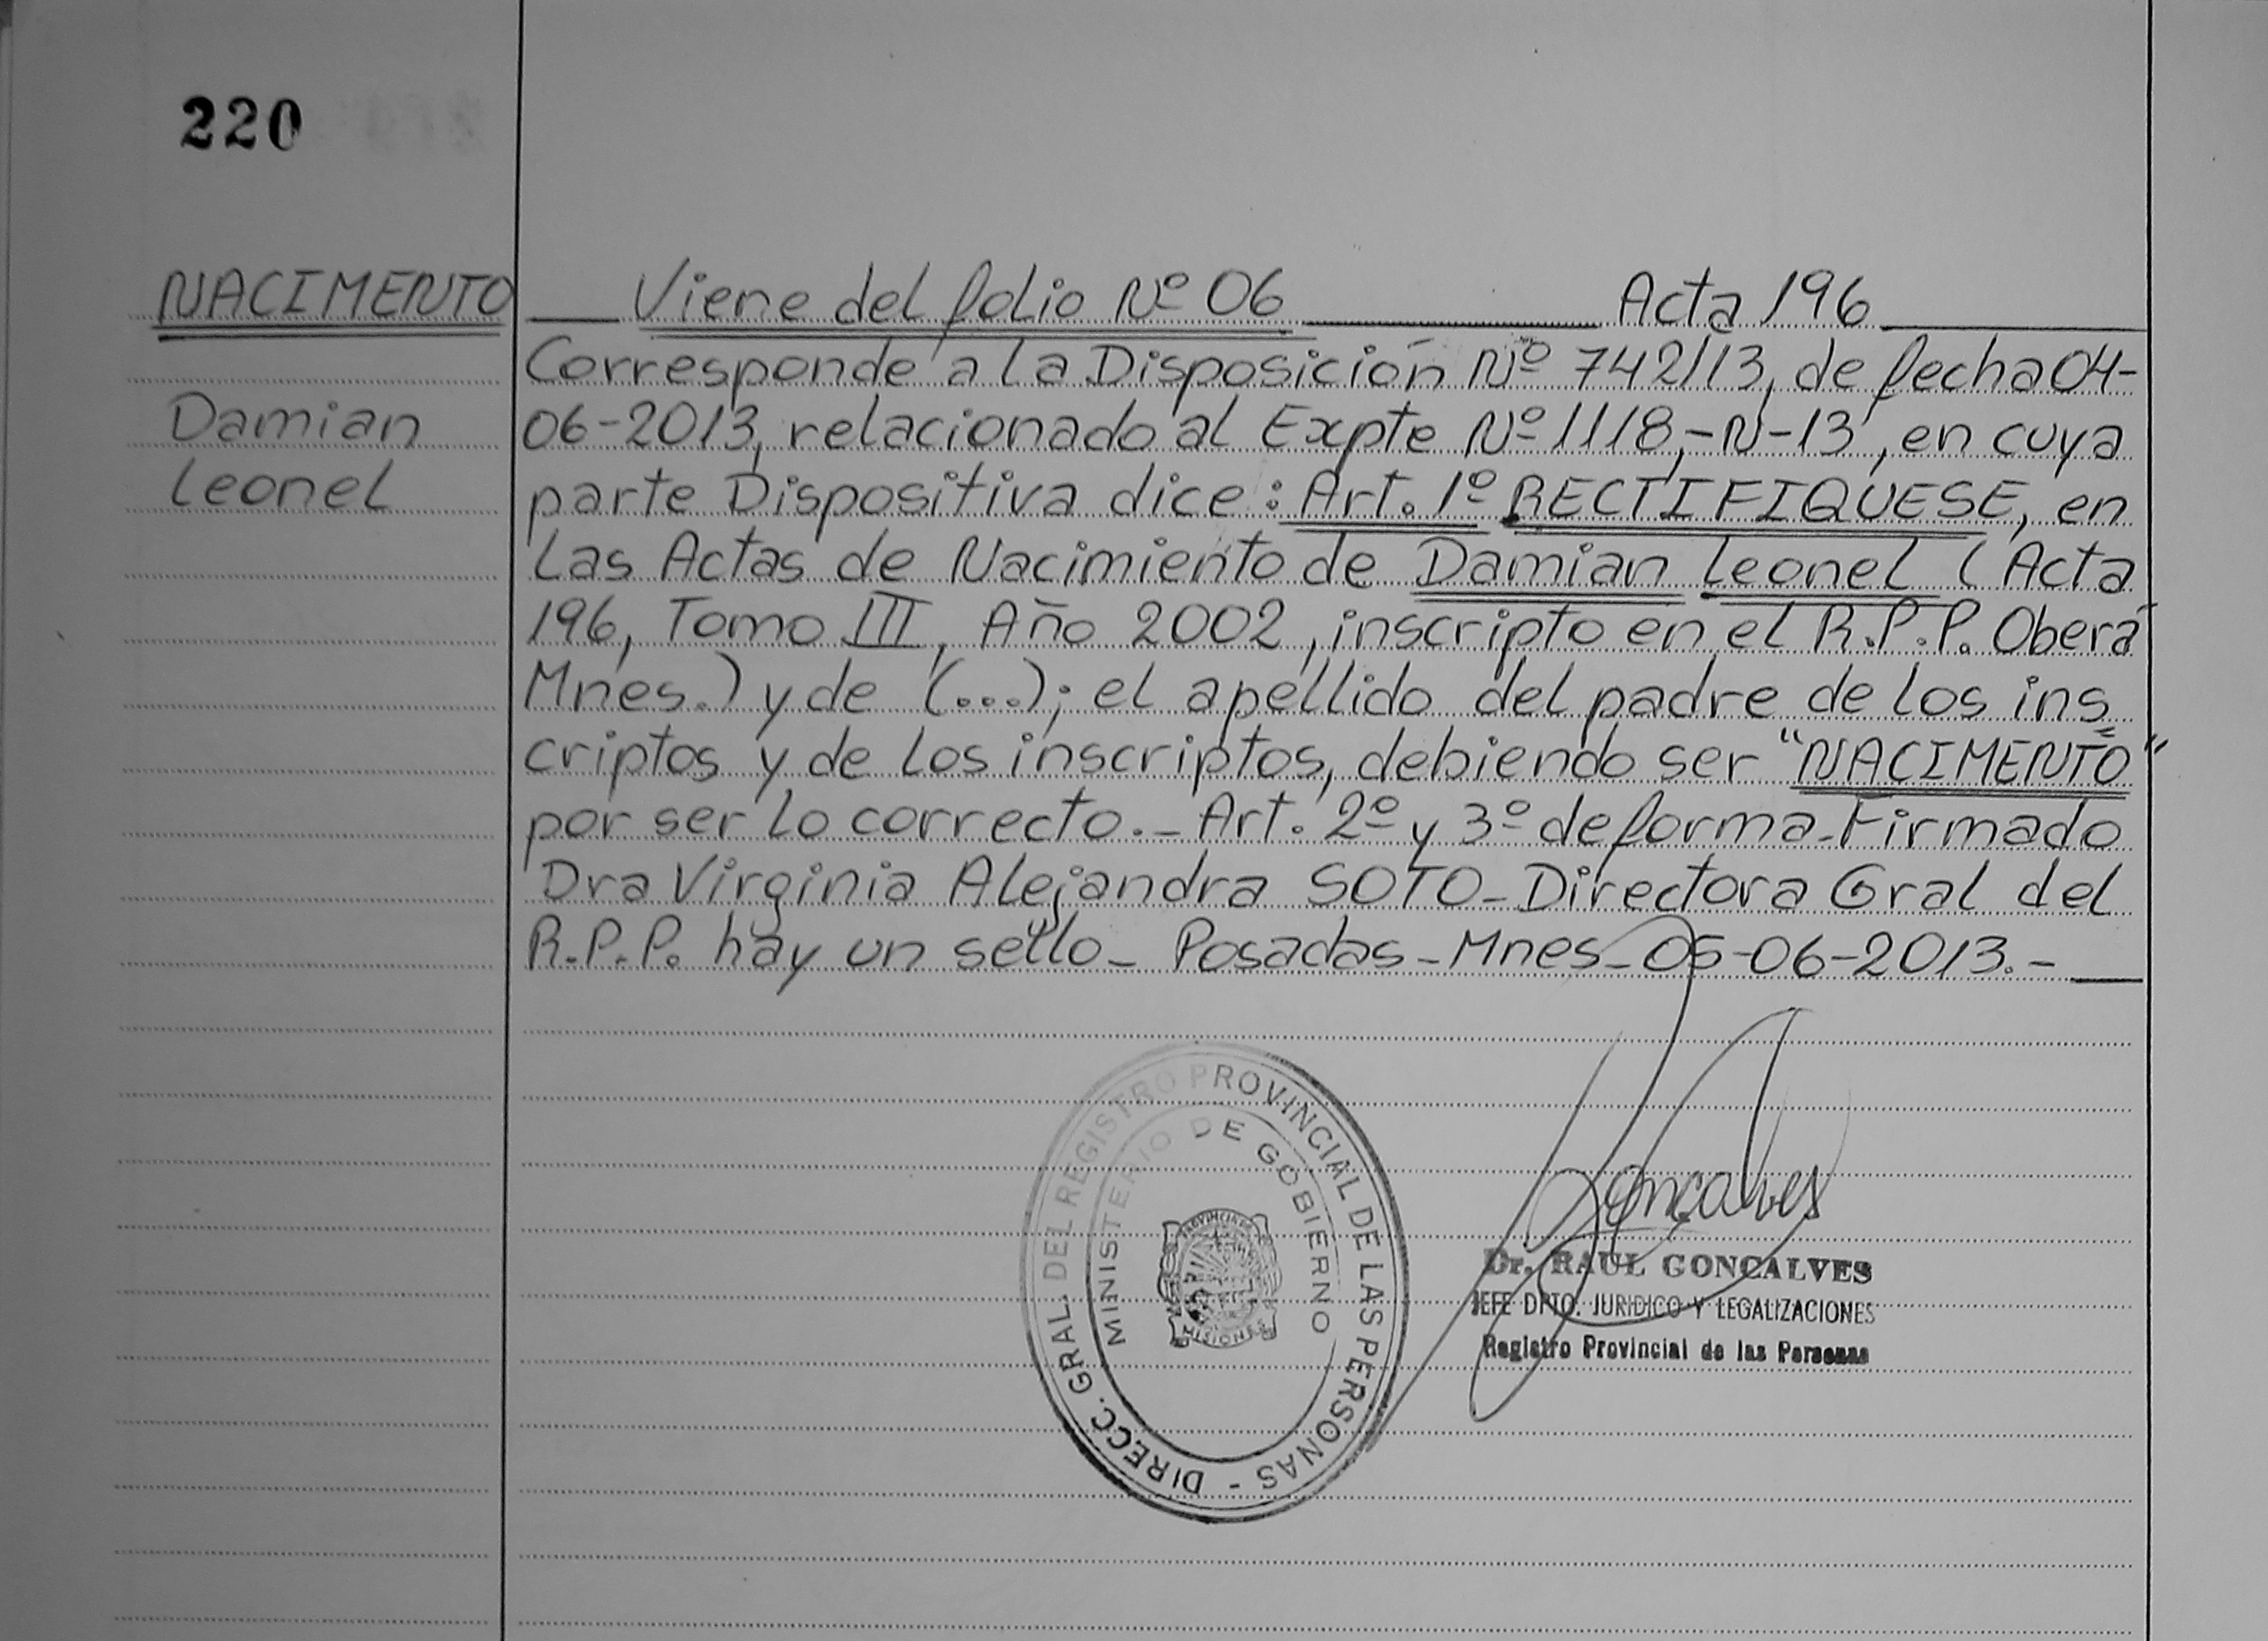 220
NACIMENTO
Damian
Leonel
Viene del folio Nº 06 Acta 196
Corresponde a la Disposición Nº 742/13, de fecha 04-
06-2013, relacionado al Expte Nº 1118,-N-13, en cuya
parte Dispositiva dice: Art. 1º RECTIFIQUESE, en
Las Actas de Nacimiento de Damian Leonel (Acta
196, Tomo III, Año 2002, inscripto en el R.P.P. Oberá
Mnes.) y de (...); el apellido del padre de los ins
criptos y de los inscriptos, debiendo ser "NACIMENTO"
por ser lo correcto.- Art. 2º y 3º de forma-Firmado
Dra Virginia Alejandra SOTO-Directora Gral del
R.P.P. hay un sello- Posadas-Mnes-05-06-2013.-
DIRECC. GRAL. DEL REGISTRO PROVINCIAL DE LAS PERSONAS -
MINISTERIO DE GOBIERNO
PROVINCIA DE
MISIONES
Goncalves
Dr. RAUL GONCALVES
JEFE DPTO. JURIDICO Y LEGALIZACIONES
Registro Provincial de las Personas